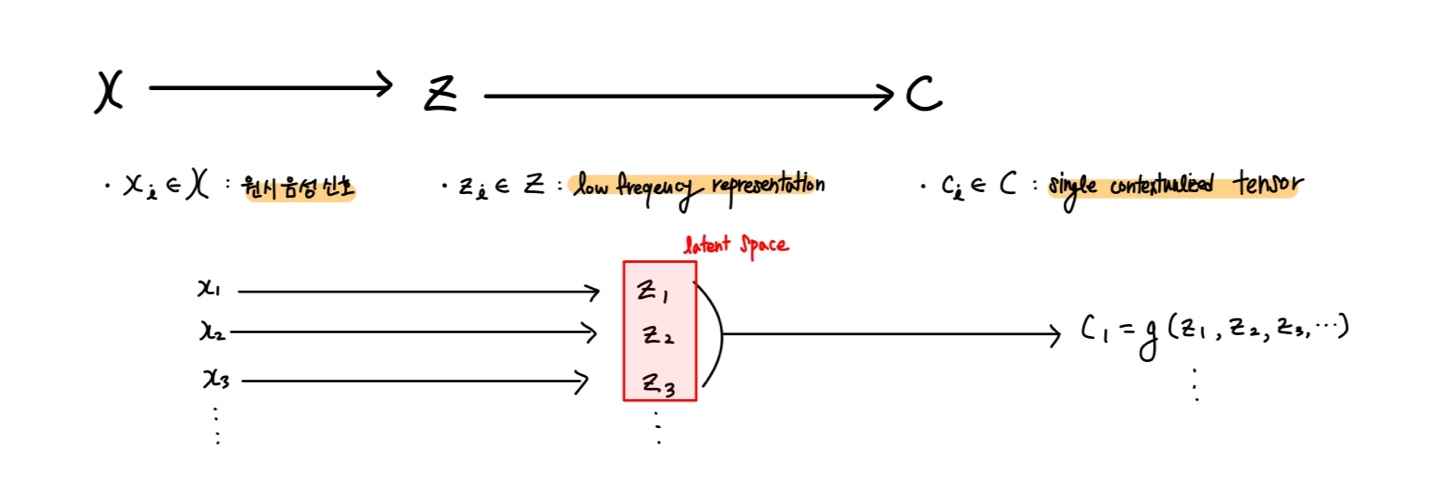 X → Z → C
· xᵢ ∈ X : 원시 음성 신호
· zᵢ ∈ Z : low freqency representation
· cᵢ ∈ C : single contextualized tensor
latent space
x₁ → z₁
x₂ → z₂
x₃ → z₃
⋮ ⋮
C₁ = g (z₁, z₂, z₃, ⋯)
⋮